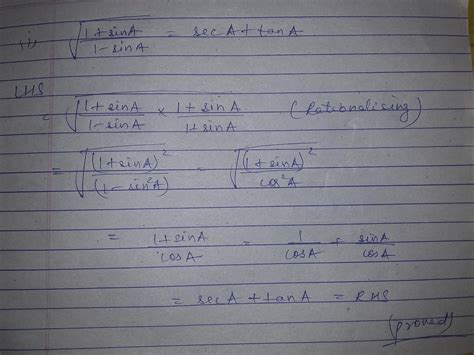 (i) √(1+sinA / 1-sinA) = sec A + tan A
LHS
= √(1+sinA / 1-sinA × 1+sinA / 1+sinA) (Rationalising)
= √((1+sinA)² / (1-sin²A)) = √((1+sinA)² / cos²A)
= 1+sinA / cosA = 1 / cosA + sinA / cosA
= sec A + tan A = RHS
(proved)